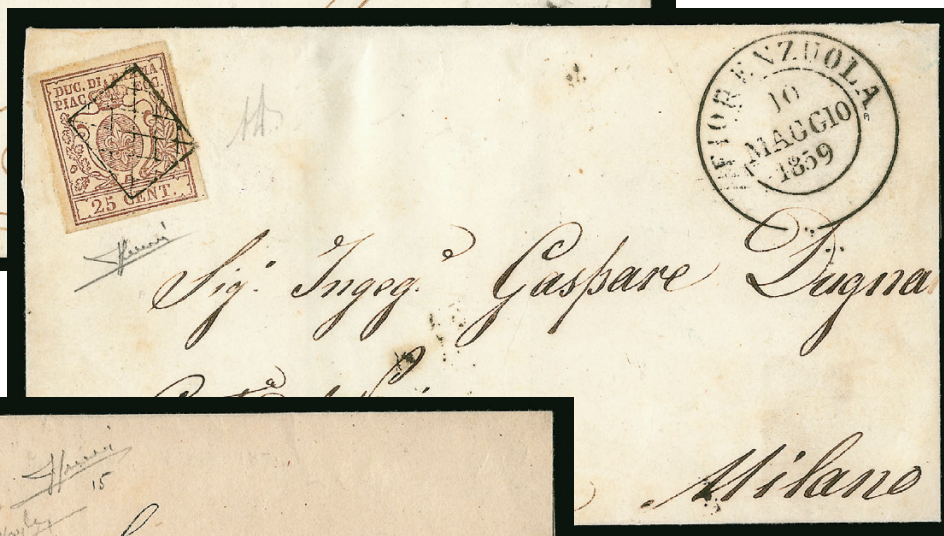 DUC. DI PARMA
PIAC. ECC.
25 CENT.
FIORENZUOLA
10
MAGGIO
1859
Sig.r Ingeg.e Gaspare Dugna
Milano
15